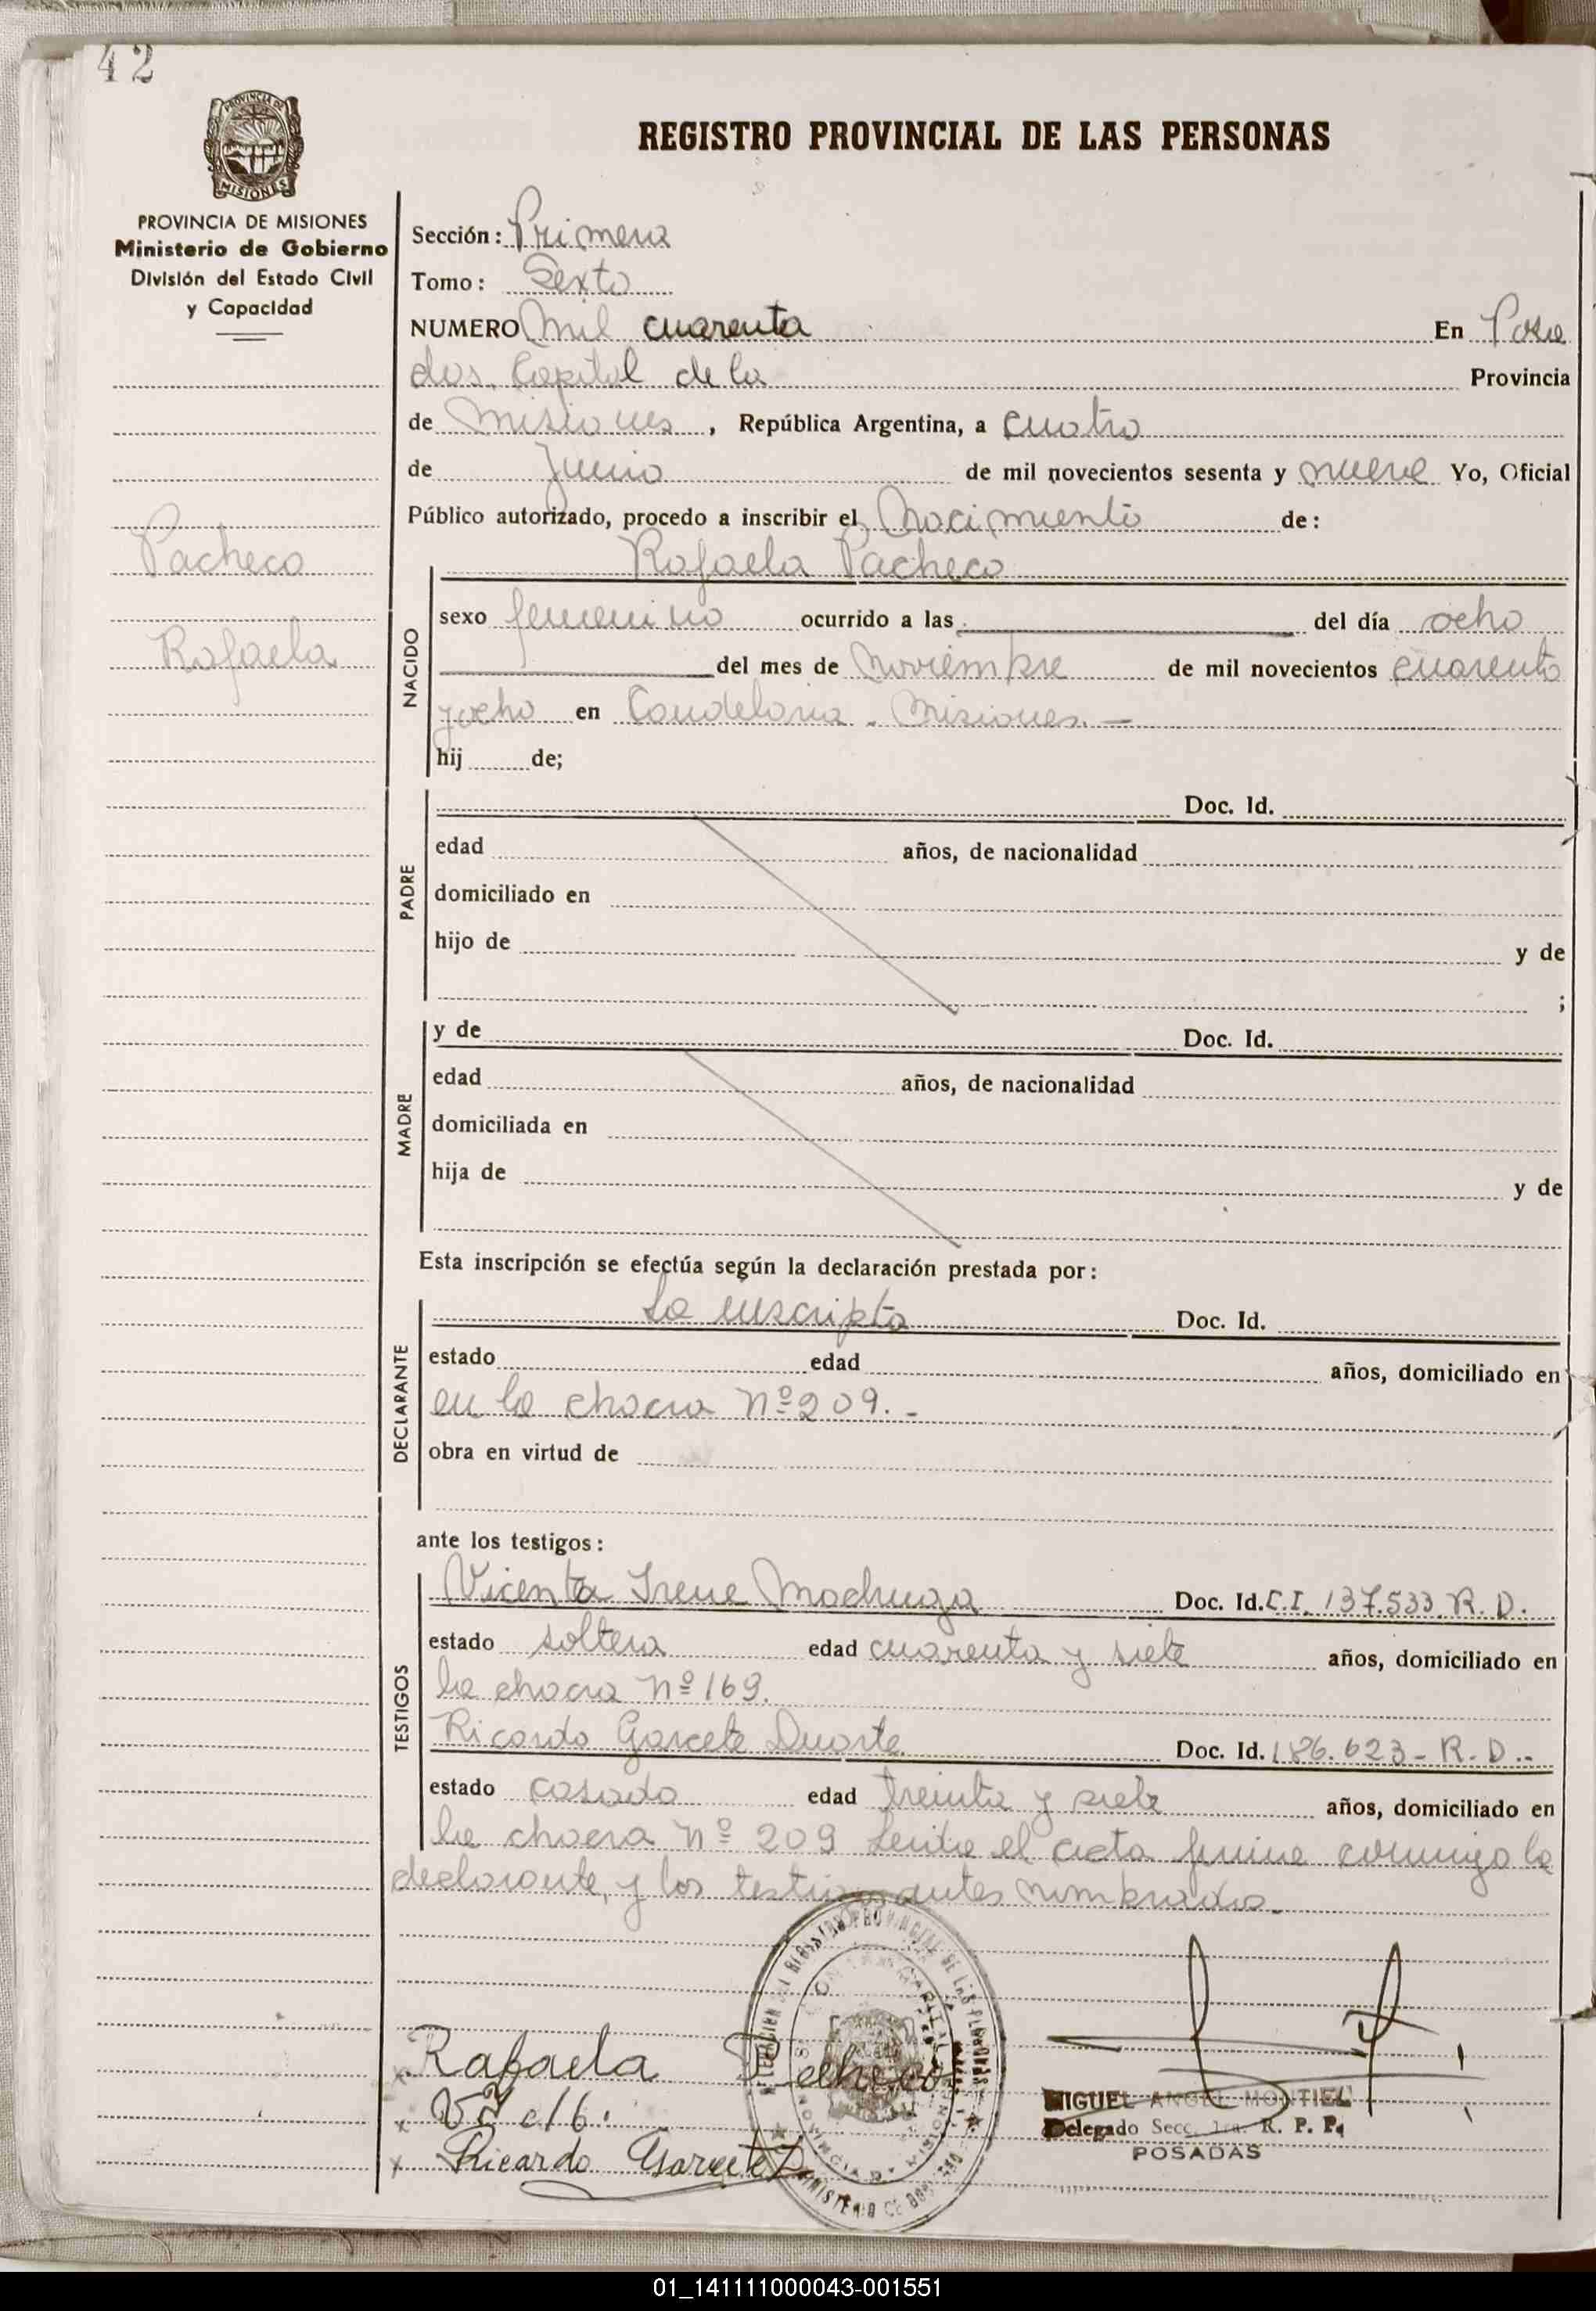 42
PROVINCIA DE MISIONES
MISIONES
PROVINCIA DE MISIONES
Ministerio de Gobierno
División del Estado Civil
y Capacidad
REGISTRO PROVINCIAL DE LAS PERSONAS
Sección: Primera
Tomo: Sexto
NUMERO Mil cuarenta En Posa
das, Capital de la Provincia
de Misiones, República Argentina, a cuatro
de Junio de mil novecientos sesenta y nueve Yo, Oficial
Público autorizado, procedo a inscribir el Nacimiento de:
Pacheco
Rafaela
Rafaela Pacheco
NACIDO
sexo femenino ocurrido a las del día ocho
del mes de Noviembre de mil novecientos cuarenta
y ocho en Candelaria - Misiones. -
hij de;
PADRE
Doc. Id.
edad años, de nacionalidad
domiciliado en
hijo de y de
;
MADRE
y de Doc. Id.
edad años, de nacionalidad
domiciliada en
hija de y de
Esta inscripción se efectúa según la declaración prestada por:
DECLARANTE
La suscripta Doc. Id.
estado edad años, domiciliado en
en la chacra Nº 209. -
obra en virtud de
ante los testigos:
TESTIGOS
Vicenta Irene Machuga Doc. Id. C.I. 137.533. R. D.
estado soltera edad cuarenta y siete años, domiciliado en
la chacra Nº 169.
Ricardo Garcete Duarte Doc. Id. 186.623 - R. D. -
estado casado edad treinta y siete años, domiciliado en
la chacra Nº 209 Leida el acta firma conmigo la
declarante, y los testigos antes nombrados. -
x Rafaela Pacheco
x
x Ricardo Garcete D
MIGUEL ANGEL MONTIEL
Delegado Secc. 1ra. R. P. P.
POSADAS
01_141111000043-001551